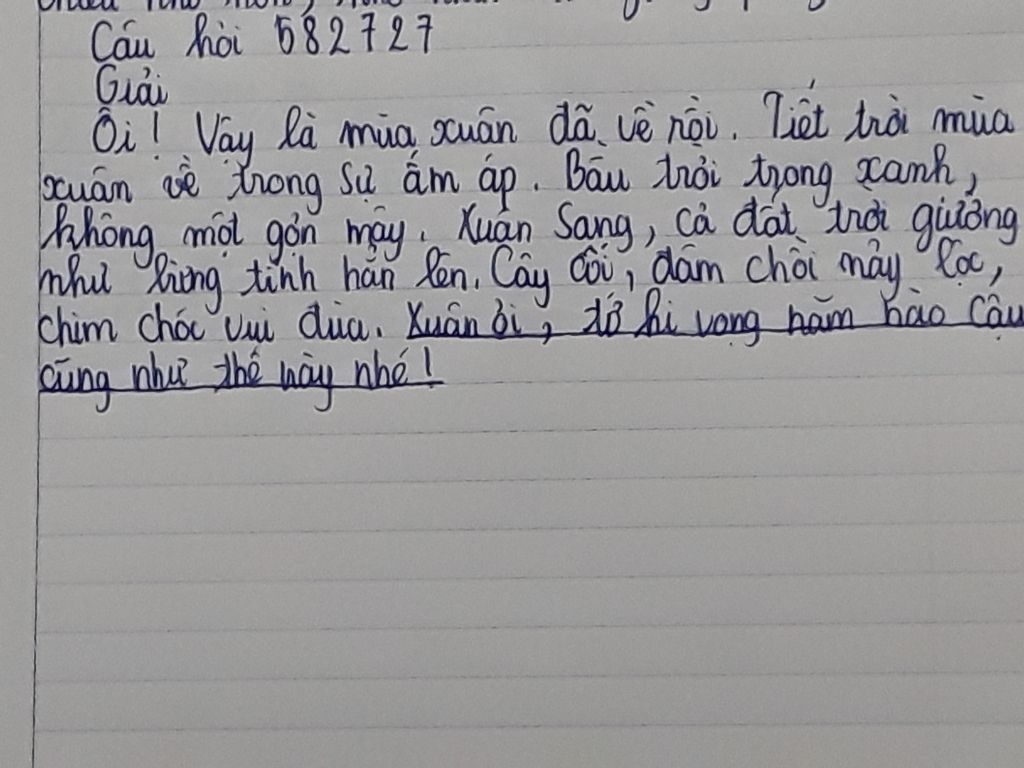 Câu hỏi 582727
Giải
Ôi! Vậy là mùa xuân đã về rồi. Tiết trời mùa
xuân về trong sự ấm áp. Bầu trời trong xanh,
không một gợn mây. Xuân sang, cả đất trời giường
như bừng tỉnh hẳn lên. Cây cối, đâm chồi nảy lộc,
chim chóc vui đùa. Xuân ơi, tớ hi vọng năm nào cậu
cũng như thế này nhé!